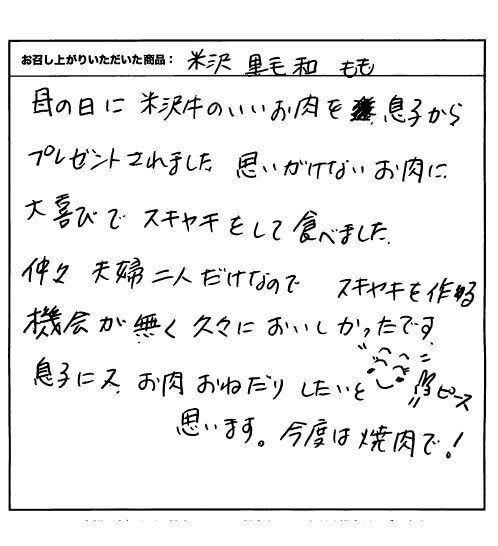 お召し上がりいただいた商品： 米沢 黒毛和 もも
母の日に 米沢牛のいいお肉を 息子から
プレゼントされました 思いがけないお肉に
大喜びで スキヤキをして食べました.
仲々 夫婦二人だけなので スキヤキを作る
機会が無く久々においしかったです
息子に又 お肉おねだりしたいと ピース
思います。今度は焼肉で!